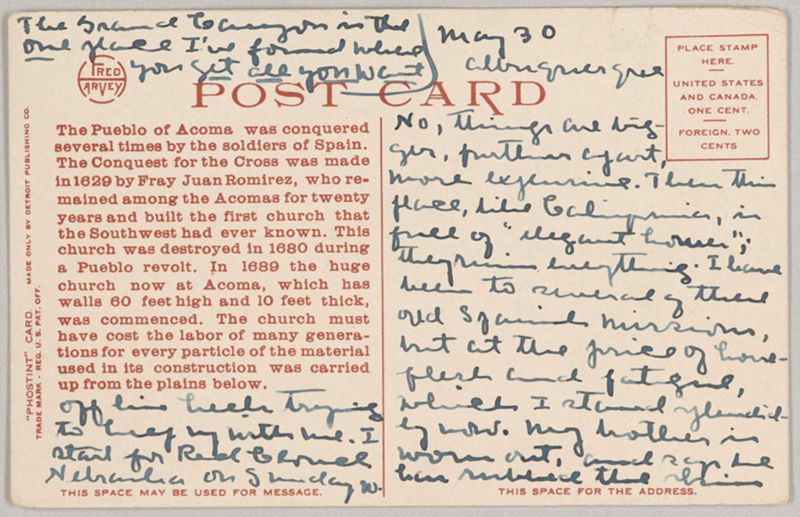 The Grand Canyon is the
one place I've found where
you get all you want
May 30
Albuquerque
FRED
HARVEY
POST CARD
PLACE STAMP
HERE.
UNITED STATES
AND CANADA.
ONE CENT.
FOREIGN, TWO
CENTS
"PHOSTINT" CARD. MADE ONLY BY DETROIT PUBLISHING CO.
TRADE MARK - REG. U. S. PAT. OFF.
The Pueblo of Acoma was conquered
several times by the soldiers of Spain.
The Conquest for the Cross was made
in 1629 by Fray Juan Romirez, who re-
mained among the Acomas for twenty
years and built the first church that
the Southwest had ever known. This
church was destroyed in 1680 during
a Pueblo revolt. In 1689 the huge
church now at Acoma, which has
walls 60 feet high and 10 feet thick,
was commenced. The church must
have cost the labor of many genera-
tions for every particle of the material
used in its construction was carried
up from the plains below.
No, things are big-
ger, further apart,
more expensive. Then this
place, like California, is
full of "elegant homes";
they ruin everything. I have
been to several of these
old Spanish missions,
but at the price of horse-
flesh and fatigue,
which I stand splendid-
ly now. My brother is
worn out, and says he
has rubbed the skin
off his heels trying
to keep up with me. I
start for Red Cloud
Nebraska on Sunday
THIS SPACE MAY BE USED FOR MESSAGE.
THIS SPACE FOR THE ADDRESS.